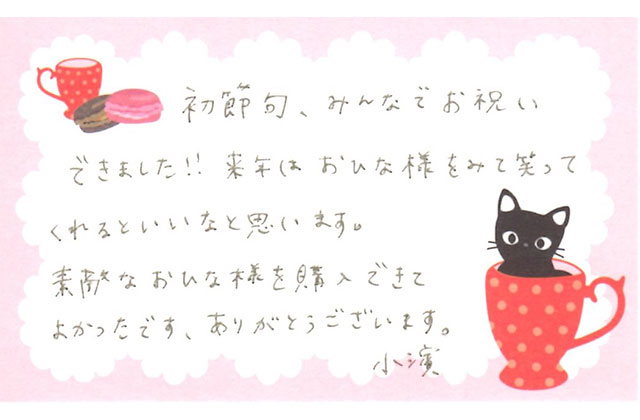 初節句、みんなでお祝い
できました!! 来年は おひな様をみて笑って
くれるといいなと思います。
素敵なおひな様を購入できて
よかったです、ありがとうございます。
小濱